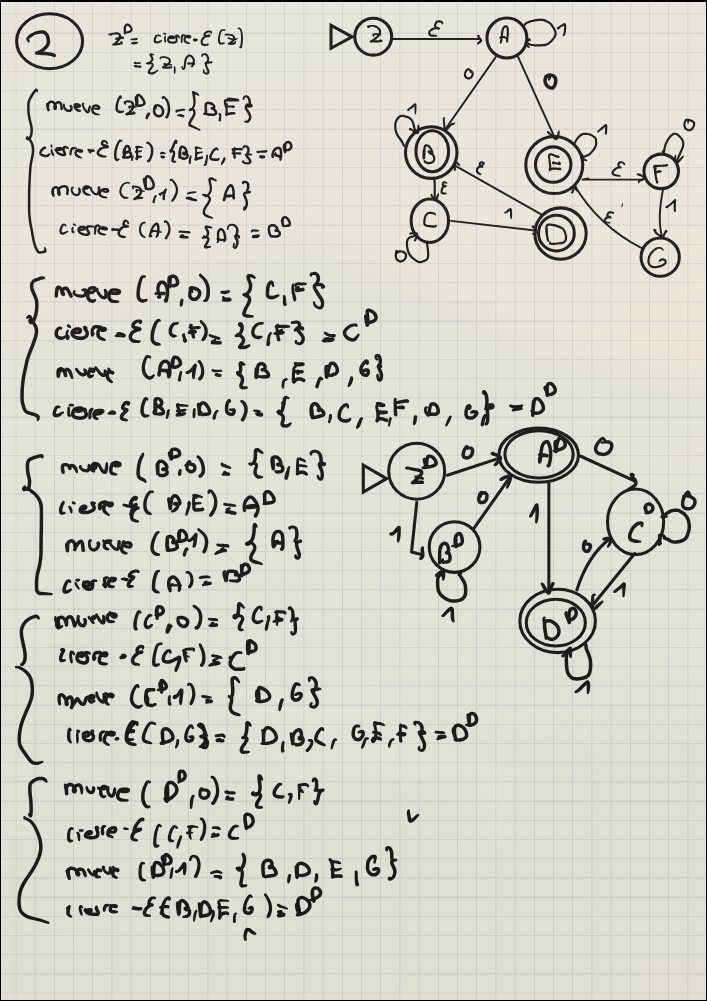 2
Z^D = cierre-ε(Z)
= {Z, A}
mueve (Z^D,0) = {B,E}
cierre-ε(BE) = {B,E,C,F} = A^D
mueve (Z^D,1) = {A}
cierre-ε(A) = {A} = B^D
Z ε A 1
0 0
1 B E 1 ε F 0
ε ε 1
C 1 D ε G
0
mueve (A^D,0) = {C,F}
cierre-ε(C,F) = {C,F} = C^D
mueve (A^D,1) = {B,E,D,G}
cierre-ε(B,E,D,G) = {B,C,E,F,D,G} = D^D
mueve (B^D,0) = {B,E}
cierre-ε(B,E) = A^D
mueve (B^D,1) = {A}
cierre-ε(A) = B^D
Z^D 0 A^D 0
1 0 1 C^D 0
B^D 0 1
1 D^D
1
mueve (C^D,0) = {C,F}
cierre-ε(C,F) = C^D
mueve (C^D,1) = {D,G}
cierre-ε(D,G) = {D,B,C,G,E,F} = D^D
mueve (D^D,0) = {C,F}
cierre-ε(C,F) = C^D
mueve (D^D,1) = {B,D,E,G}
cierre-ε(B,D,E,G) = D^D